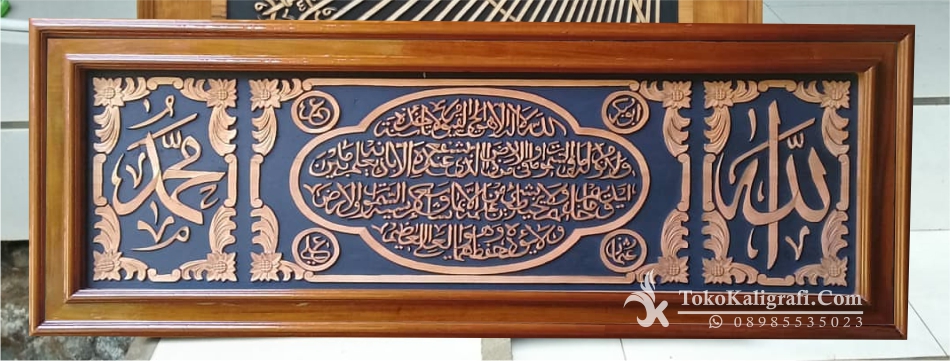 الله
ابوبكر
عمر
الله لا إله إلا هو الحي القيوم لا تأخذه
سنة ولا نوم له ما في السموات وما في الأرض من ذا الذي يشفع عنده إلا بإذنه يعلم ما بين
أيديهم وما خلفهم ولا يحيطون بشيء من علمه إلا بما شاء وسع كرسيه السموات والأرض
ولا يؤده حفظهما وهو العلي العظيم
عثمان
علي
محمد
TokoKaligrafi.Com
08985535023